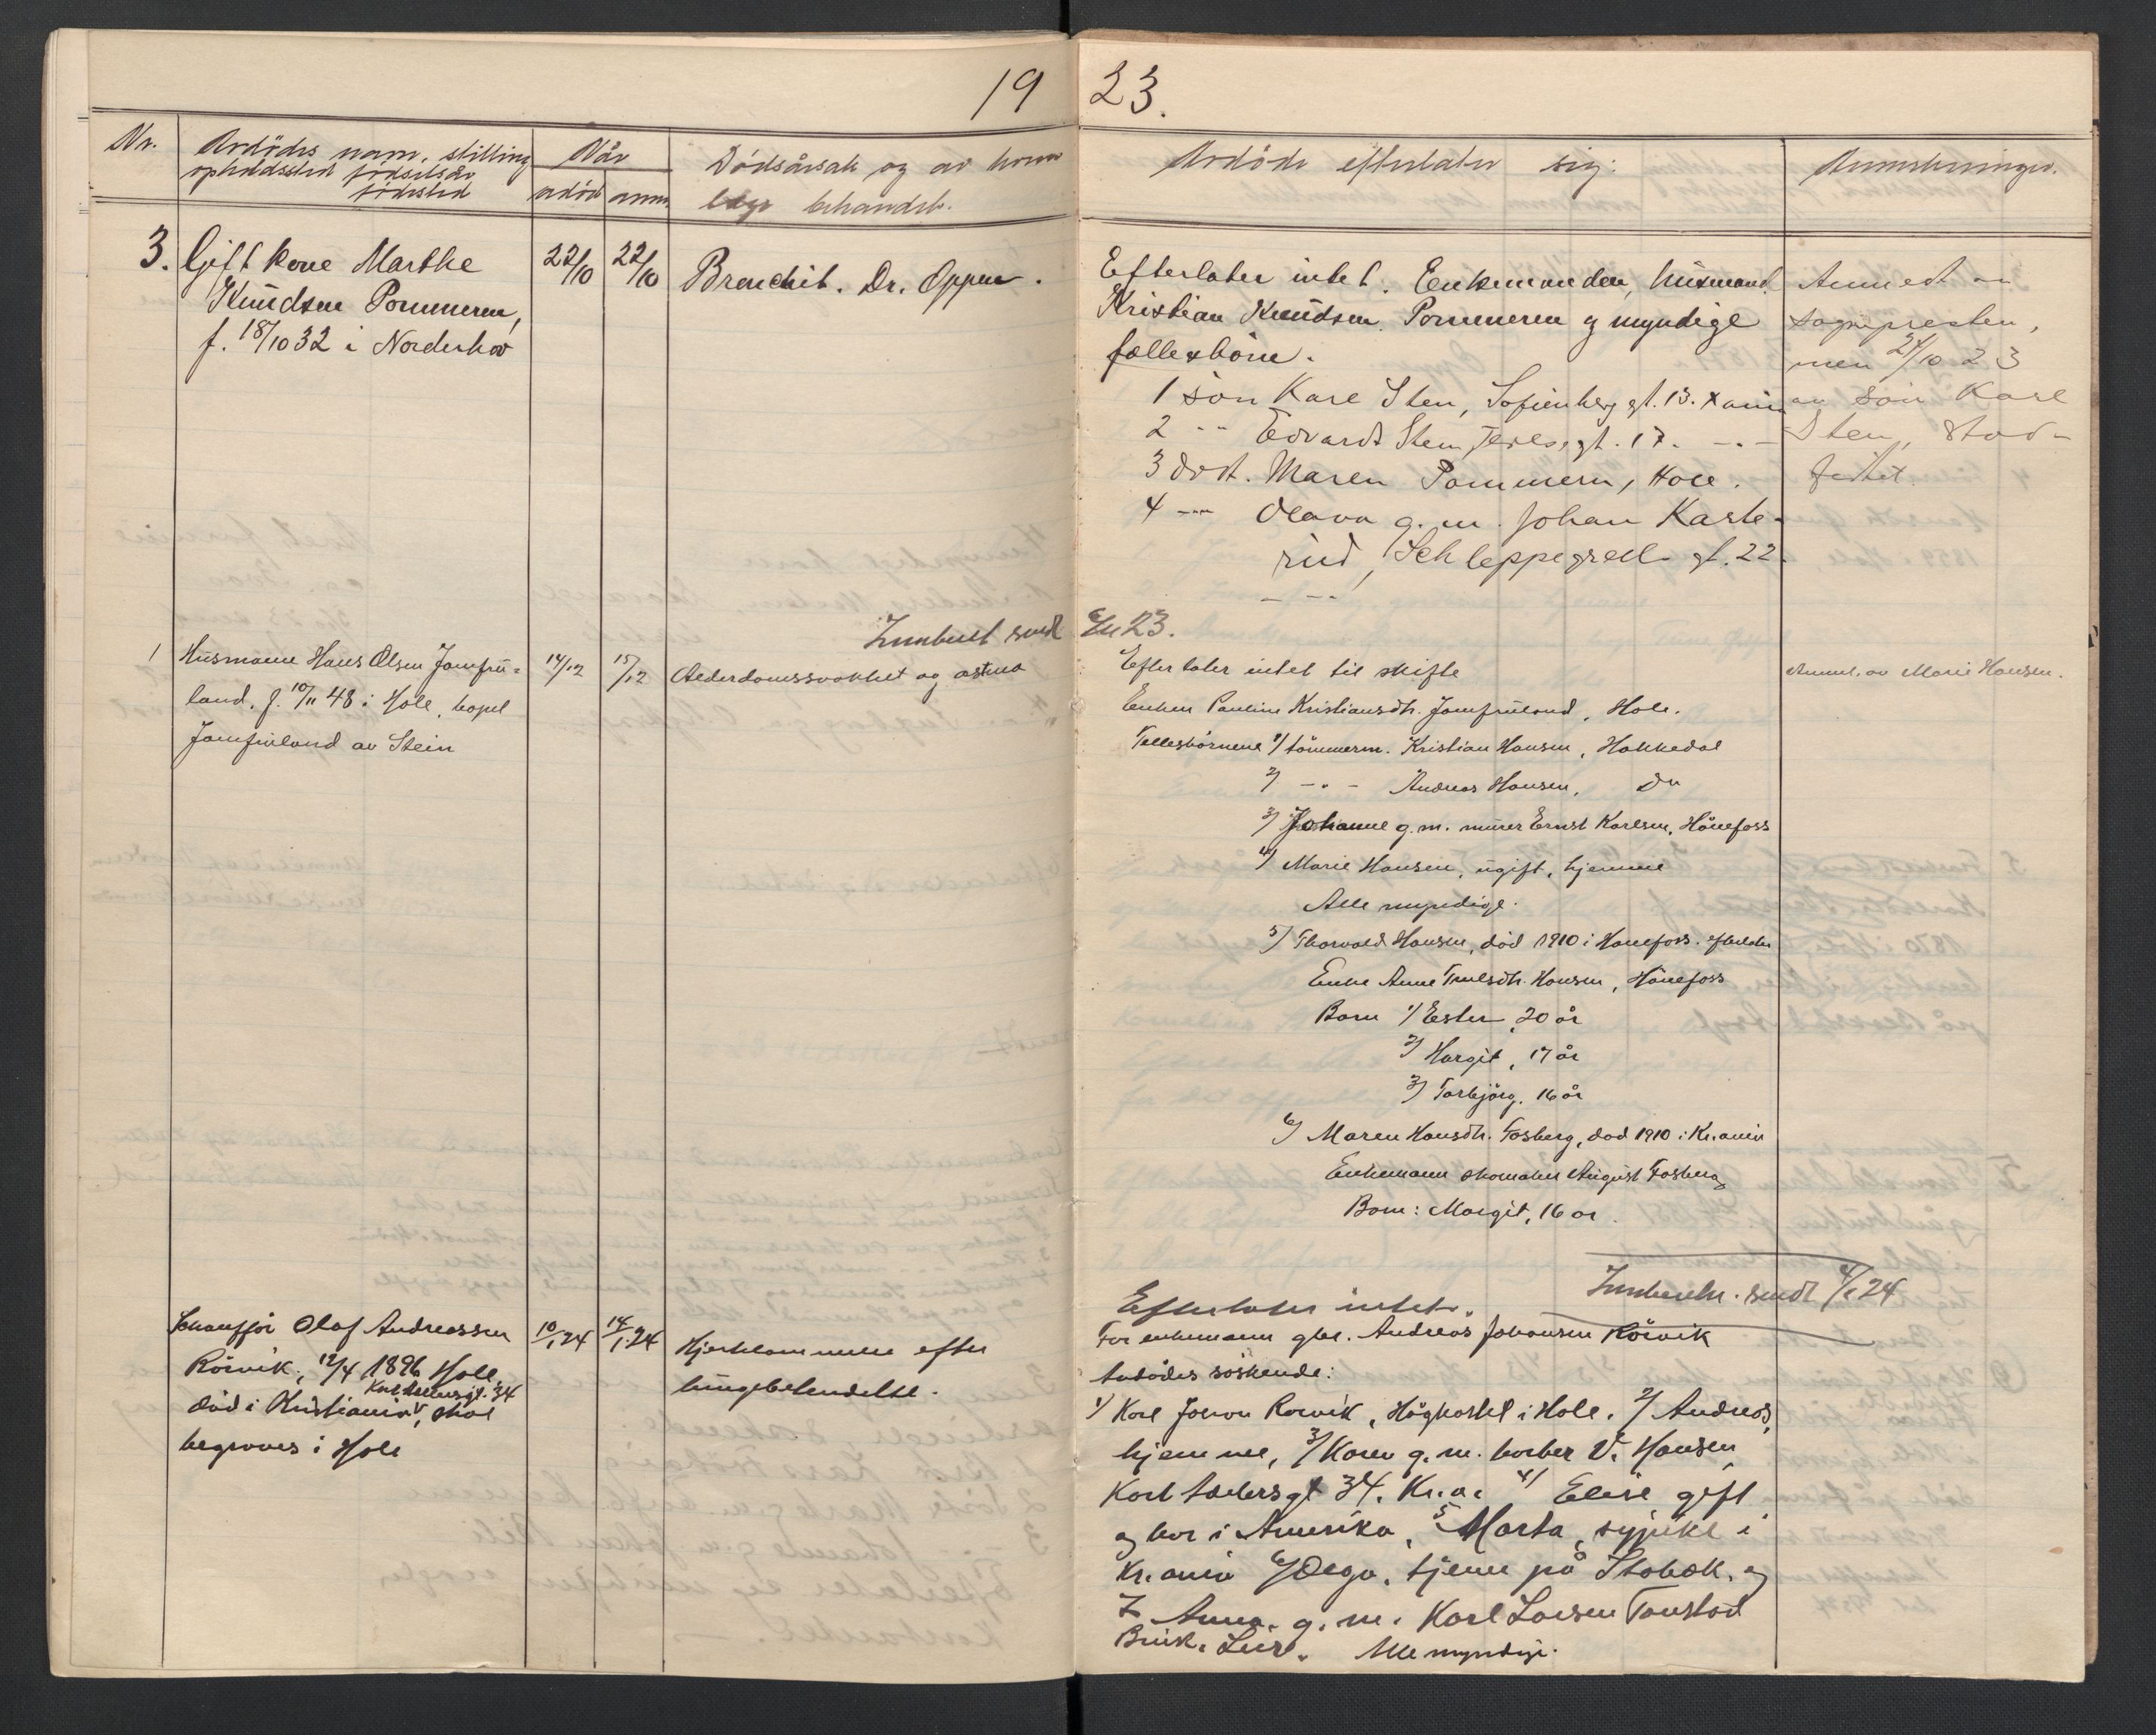 19 23.
Nr.
Avdödes navn, stilling
opholdssted födselsår
födested
Når
avdöd
anm.
Dödsårsak og av hvem
læge behandlet.
Avdöde efterlater sig:
Anmerkninger.
3. Gift kone Marthe
Knudsen Pommeren,
f. 18/10 32 i Norderhov
22/10
22/10
Bronchit. Dr. Oppen.
Efterlater intet. Enkemanden, husmand
Kristian Knudsen Pommeren og myndige
fellesbörn.
1 sön Karl Sten, Sofienberg gt. 13. Xania
2 -"- Edvard Sten, gt. 17. -"-
3 dat. Maren Pommern, Hole.
4 -"- Olava g.m. Johan Karle-
rud, Schleppegrell gt. 22.
-"-
Anmedt av
sognepresten,
men 27/10 23
av sön Karl
Sten, stad-
festet.
Innberet sendt 23.
1 Husmann Hans Olsen Jomfru-
land, f. 10/11 48 i Hole, bopel
Jomfruland av Stein
14/12
15/12
Alderdomssvakhet og astma
Efterlater intet til skifte
Enken Pauline Kristiansdtr. Jomfruland, Hole.
Fellesbörnene 1/ tömmerm. Kristian Hansen, Hakkedal
2/ -"- Andreas Hansen, do
3/ Johanne g.m. murer Ernst Karlsen, Hönefoss
4/ Marie Hansen, ugift, hjemme
Alle myndige.
5/ Thorvald Hansen, död 1910 i Hönefoss. efterlater
Enke Anne Truelsdtr. Hansen, Hönefoss
Barn 1/ Ester, 20 år
2/ Margit, 17 år
3/ Torbjörg, 16 år
6/ Maren Hansdtr. Fosberg, död 1910 i Kr.ania
Enkemann skomaker August Fosberg
Barn: Margit, 16 år.
Anmel. av Marie Hansen.
Innberetn. sendt 4/2 24
Schaufför Olaf Andreassen
Rörvik, 12/4 1896 Hole,
Karl Anders gt. 34
död i Kristiania, skal
begraves i Hole
10/1 24
14/1 24
Hjertelammelse efter
lungebetendelse.
Efterlater intet.
Far enkemann gbr. Andreas Johansen Rörvik
Avdödes söskende:
1/ Karl Johan Rörvik, Höghastel i Hole. 2/ Andreas,
hjemme, 3/ Karen g.m. barber V. Hansen
Karl Andersgt 34. Kr.a. 4/ Elise gift
og bor i Amerika, 5 Marta, sypike i
Kr.ania 6/ Olga, tjener på Stabæk. og
7 Anna. g.m. Karl Larsen Tanstad
Bruk. Lier. Alle myndige.